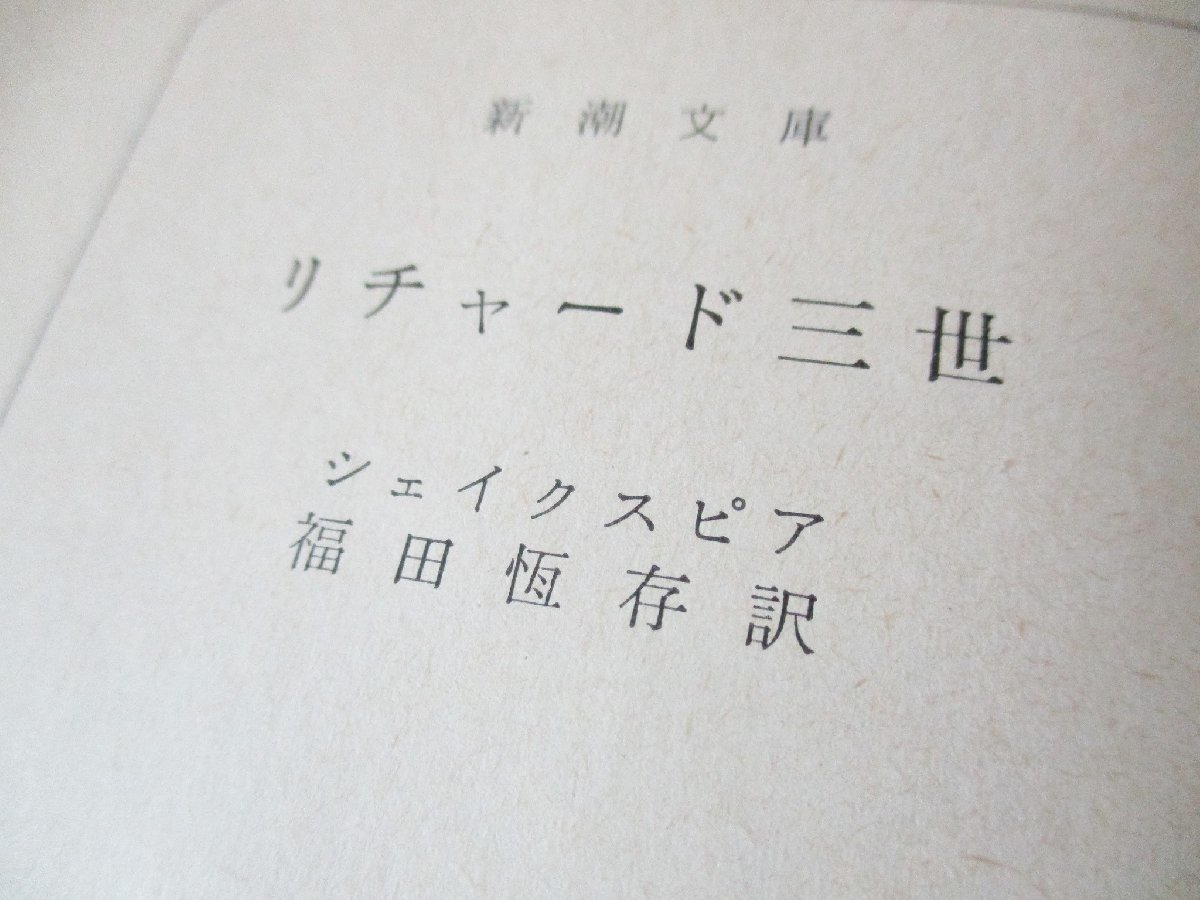 新潮文庫
リチャード三世
シェイクスピア
福田恆存訳